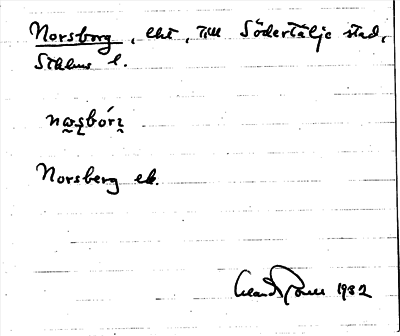 Norsborg, lht, till Södertälje stad,
Sthlms l.
Norsberg ek.
1932